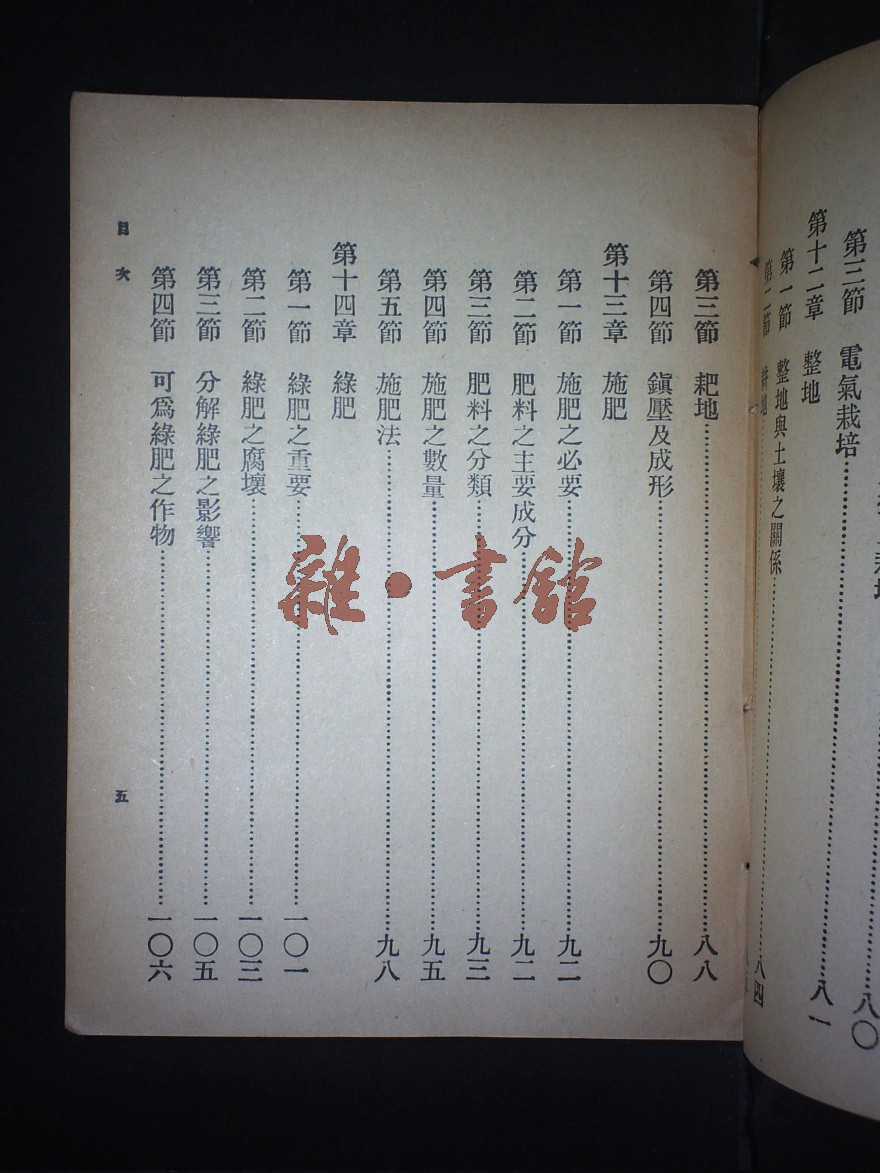 第三節 電氣栽培……八〇
第十二章 整地……八一
第一節 整地與土壤之關係……
第二節 耕地……八四
第三節 耙地……八八
第四節 鎭壓及成形……九〇
第十三章 施肥
第一節 施肥之必要……九二
第二節 肥料之主要成分……九二
第三節 肥料之分類……九三
第四節 施肥之數量……九五
第五節 施肥法……九八
第十四章 綠肥
第一節 綠肥之重要……一〇一
第二節 綠肥之腐壞……一〇三
第三節 分解綠肥之影響……一〇五
第四節 可爲綠肥之作物……一〇六
目次
五
雜·書館